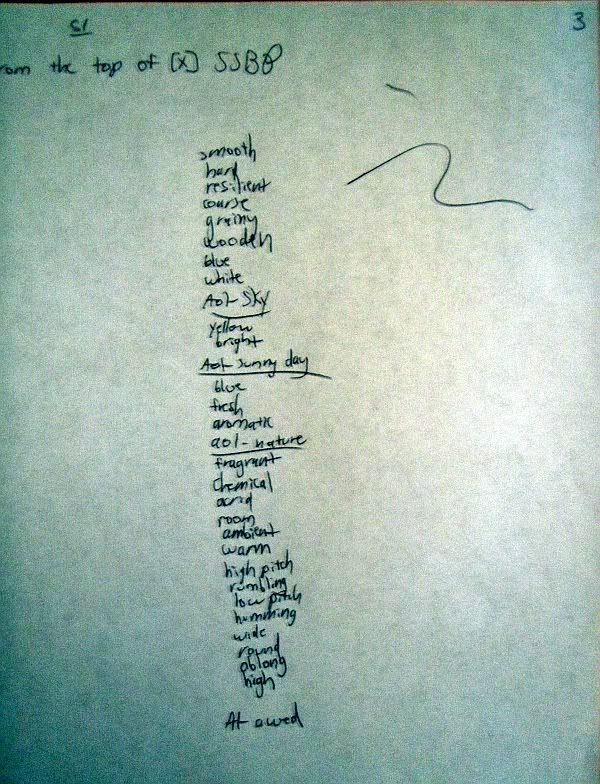 S1
3
rom the top of [X] SSBP
smooth
hard
resilient
course
grainy
wooden
blue
white
Aol- sky
yellow
bright
Aol- sunny day
blue
fresh
aromatic
aol- nature
fragrant
chemical
acrid
room
ambient
warm
high pitch
rumbling
low pitch
humming
wide
round
oblong
high
AI- awed